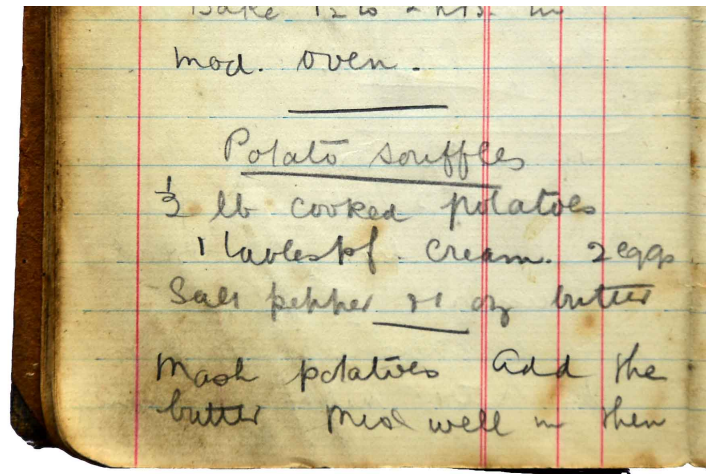 Bake 1½ to 2 hrs. in
mod. oven.
Potato souffles
½ lb cooked potatoes
1 tablespf. cream. 2 eggs
Salt pepper oz butter
Mash potatoes add the
butter well in then